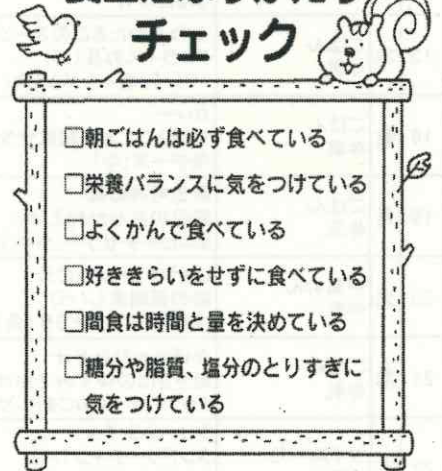 チェック
□朝ごはんは必ず食べている
□栄養バランスに気をつけている
□よくかんで食べている
□好ききらいをせずに食べている
□間食は時間と量を決めている
□糖分や脂質、塩分のとりすぎに
気をつけている